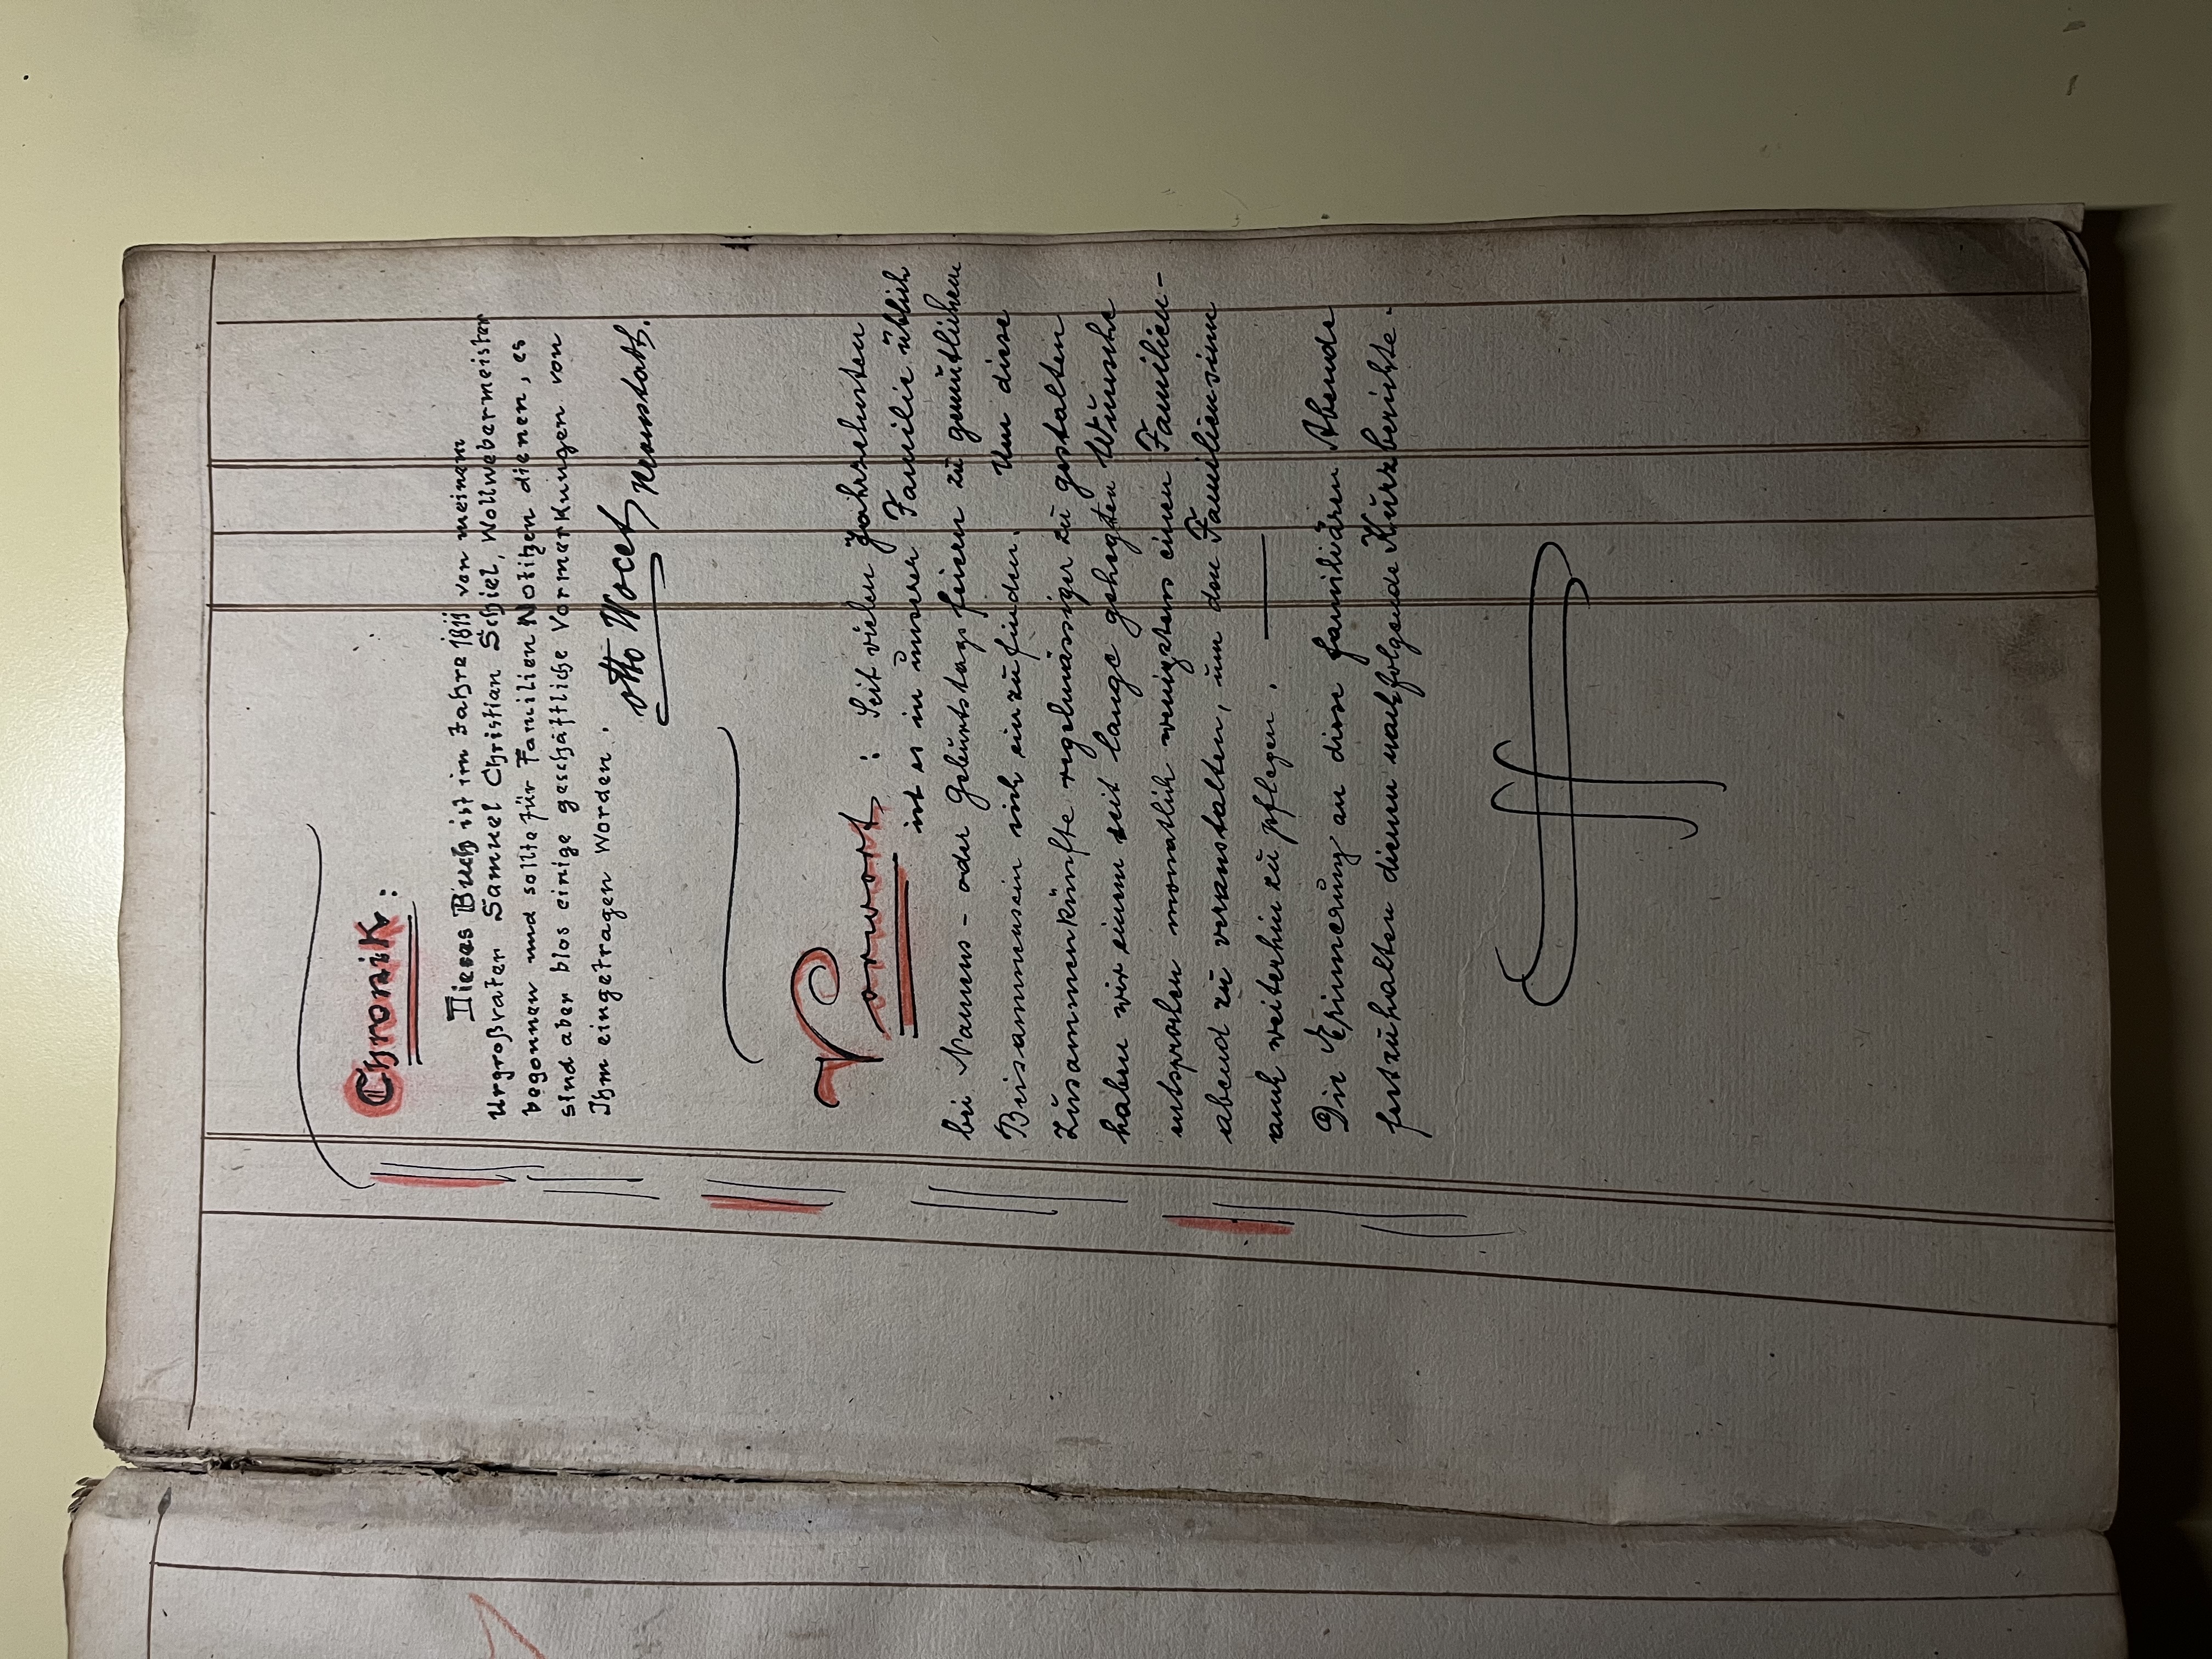 Chronik:
Dieses Buch ist im Jahre von meinem
Urgroßvater Samuel Christian Schiel, Wollwebermeister
begonnen und sollte für Familien Notizen dienen, es
sind aber blos einige geschäftliche Vormerkungen von
Ihm eingetragen worden.
Otto
Vorwort: Seit vielen Jahrzehnten
ist es in unserer Familie üblich
bei Namens- oder Geburtstagsfeiern zu gemütlichem
Beisammensein sich einzufinden. Um diese
Zusammenkünfte regelmässiger zu gestalten
haben wir einem seit lange gehegten Wunsche
entsprochen monatlich wenigstens einen Familien-
abend zu veranstalten, um den Familiensinn
auch weiterhin zu pflegen.
Die Erinnerung an diese familiären Abende
festzuhalten dienen nachfolgende Kurzberichte.